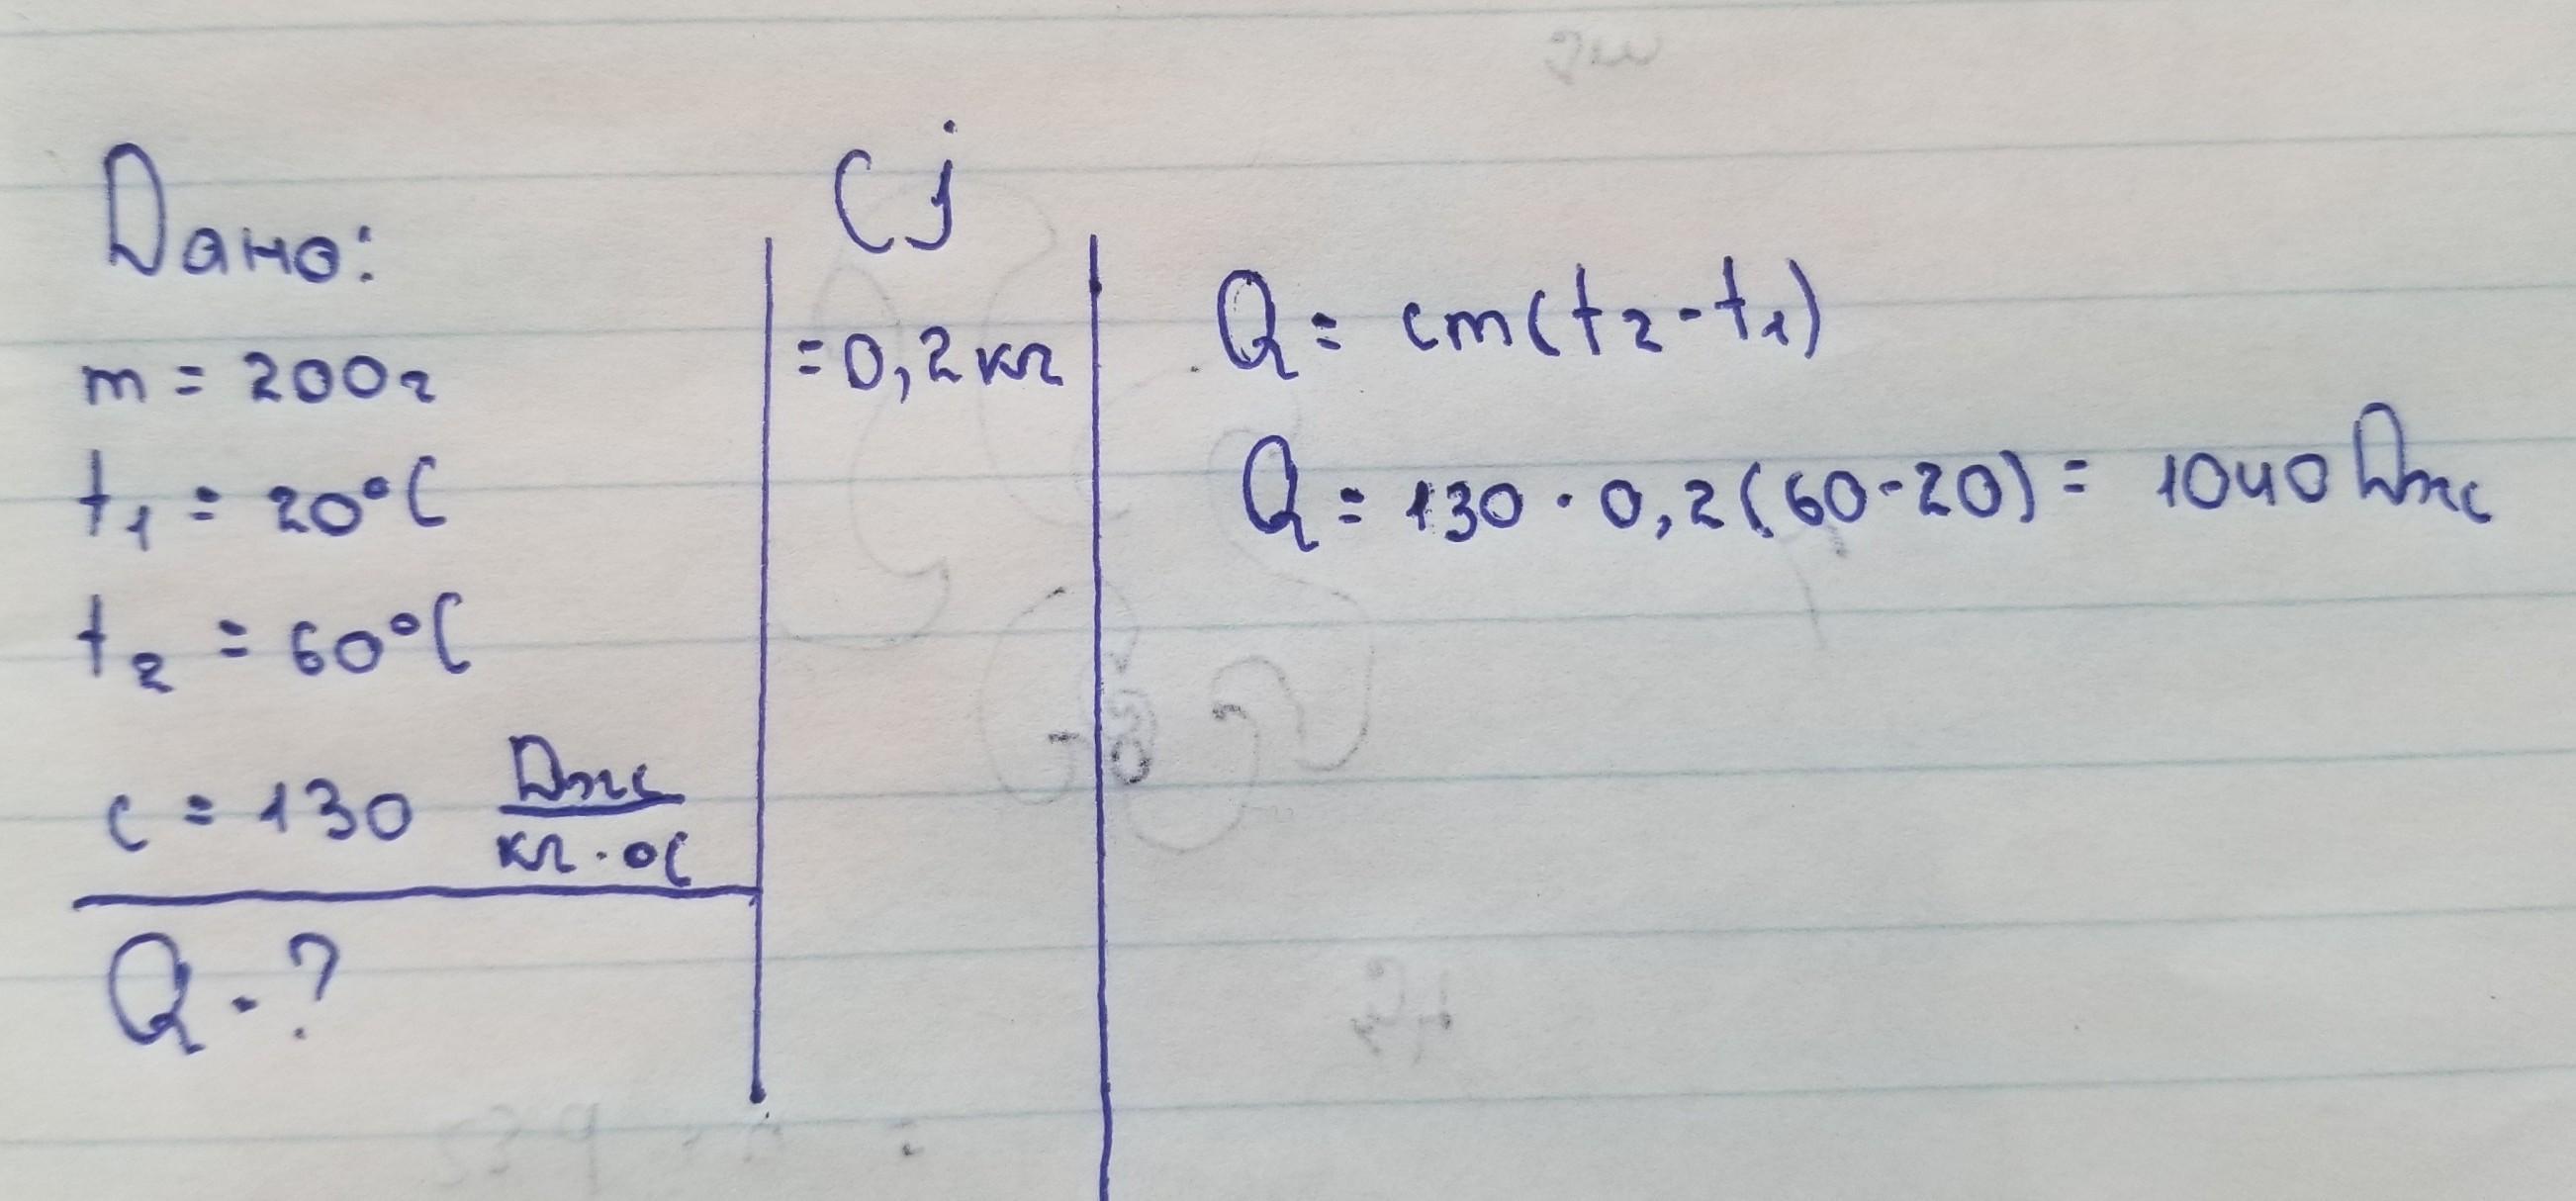 Дано:
m = 200г
t₁ = 20°C
t₂ = 60°C
c = 130 Дж/кг·°C
Q - ?
Cj
= 0,2 кг
Q = cm(t₂-t₁)
Q = 130 · 0,2(60-20) = 1040 Дж